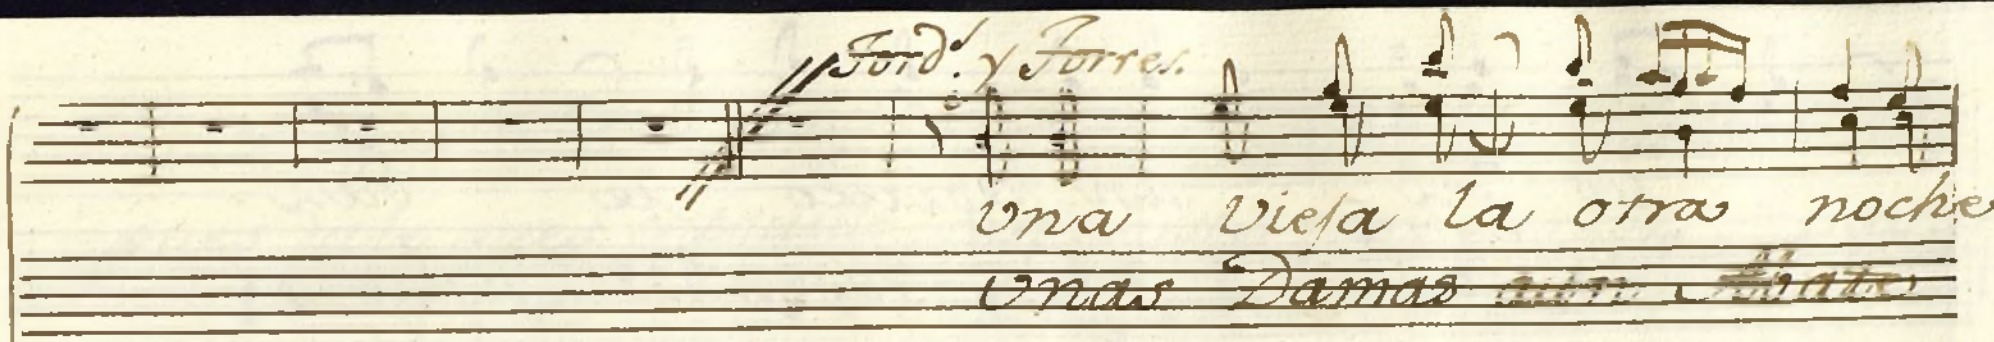 Jord.ⁿ y Torres.
Una Vieja la otra noche
Unas Damas a un Abate